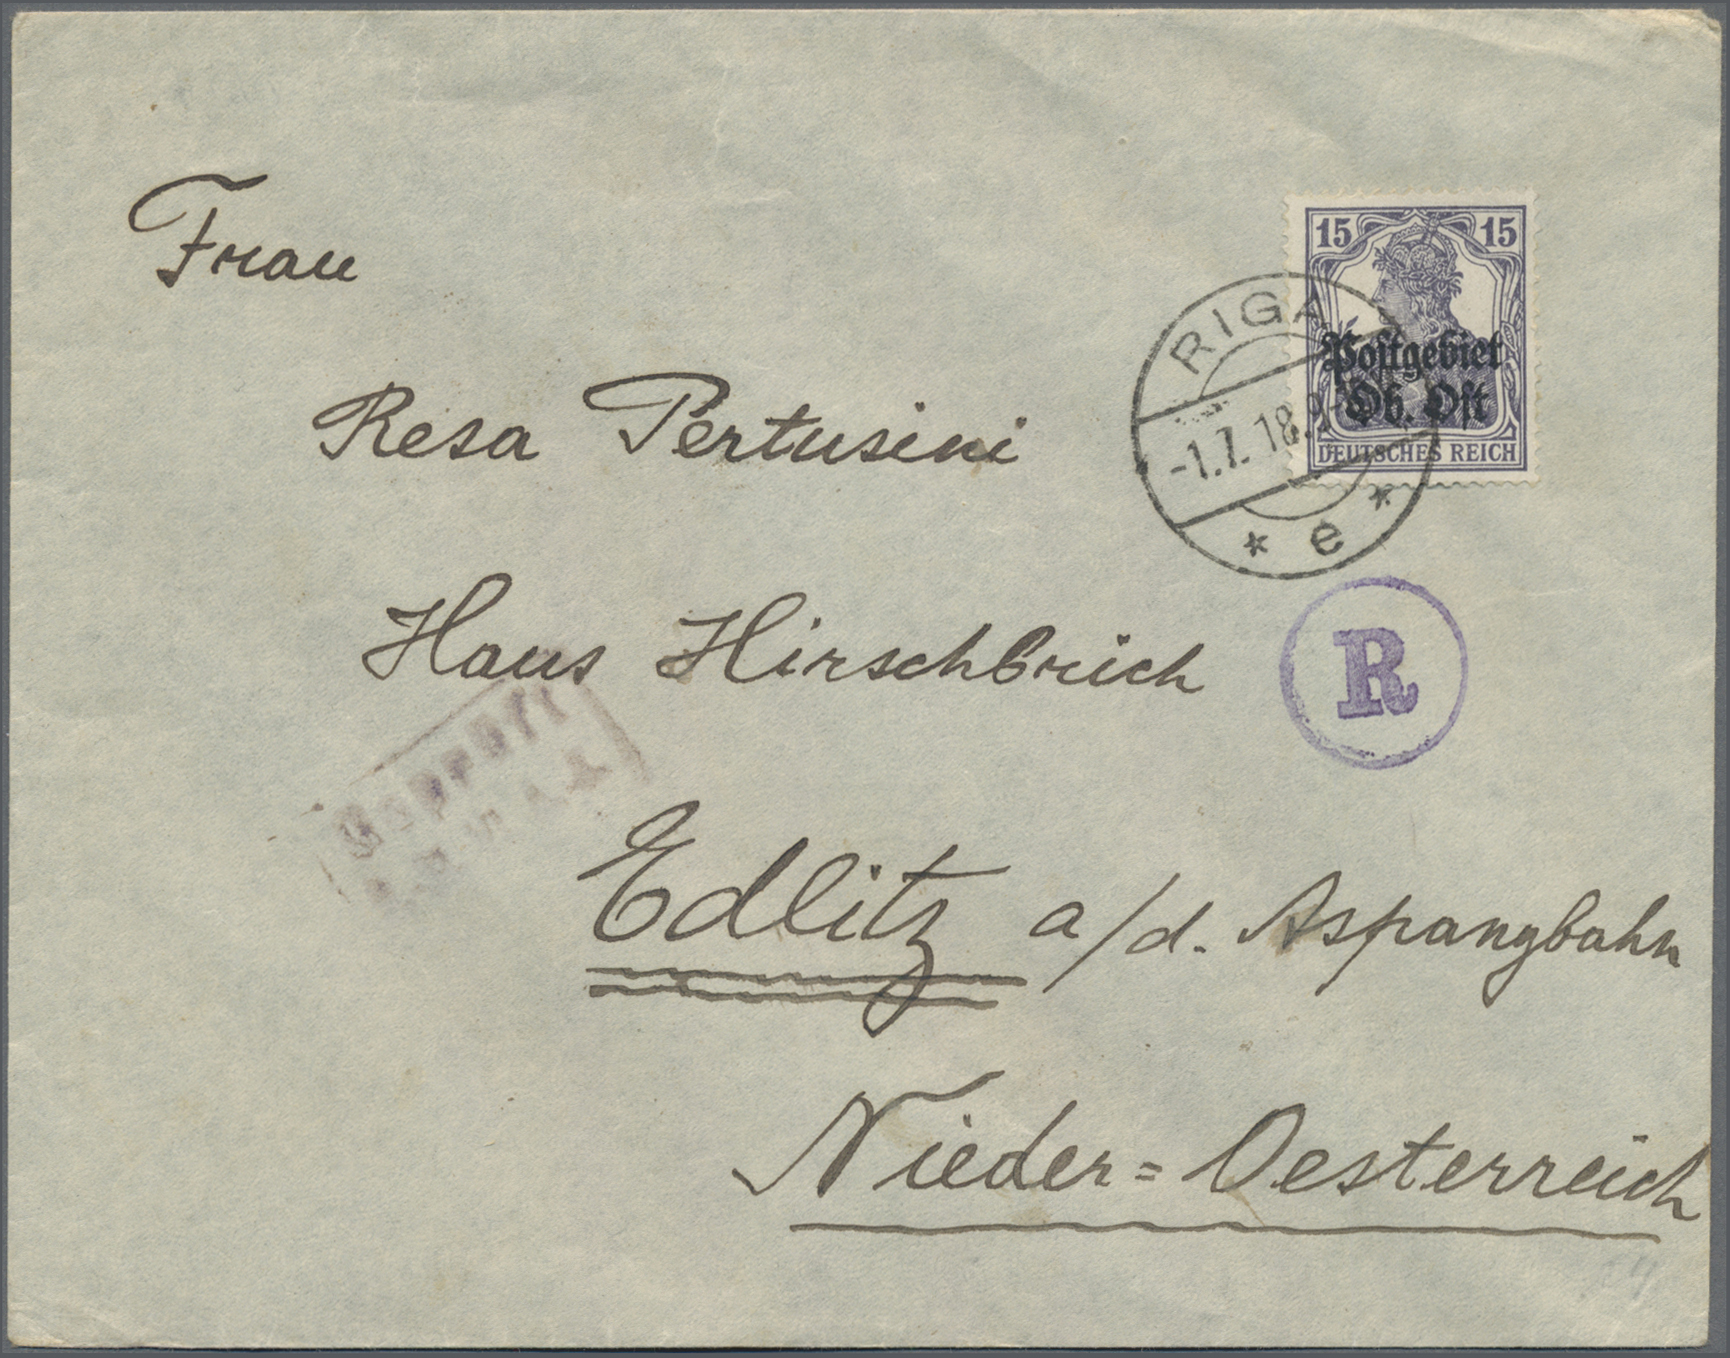 Frau
15 15
RIGA
Postgebiet
Ob. Ost
Resa Pertusini
-1.7.18.
DEUTSCHES REICH
* e *
Haus Hirschbrich
R
Geprüft
Edlitz a/d. Aspangbahn
Nieder=Oesterreich